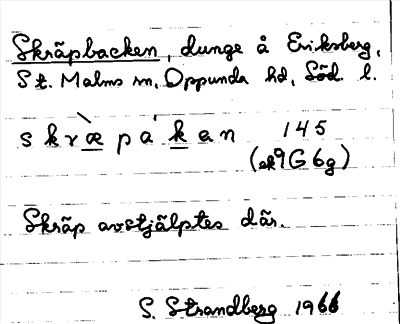 Skräpbacken, dunge å Eriksberg,
St. Malms sn, Oppunda hd, Söd. l.
skræ̀pak̀an 145
(ek9G6g)
Skräp avstjälptes där.
S. Strandberg 1966